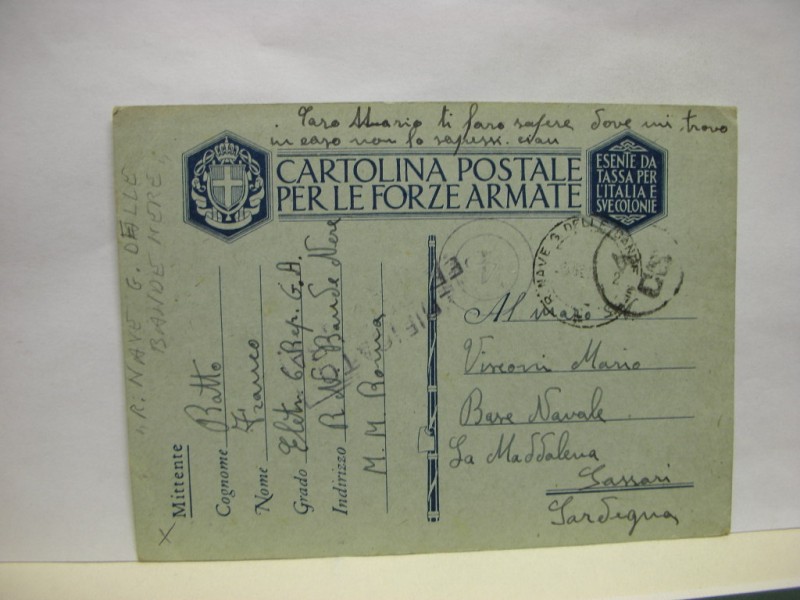 Caro Mario ti faro sapere dove mi trovo
in caso non lo sapessi. ciau
CARTOLINA POSTALE
PER LE FORZE ARMATE
ESENTE DA
TASSA PER
L'ITALIA E
SVE COLONIE
R. NAVE G. DELLE BANDE
Al
Visconi Mario
Base Navale
La Maddalena
Sassari
Sardegna
R. NAVE G. DELLE
BANDE NERE
X Mittente
Cognome Batto
Nome Franco
Grado Eletr. 6° Rep. G. A.
Indirizzo R. N. Bande Nere
M. M. Roma